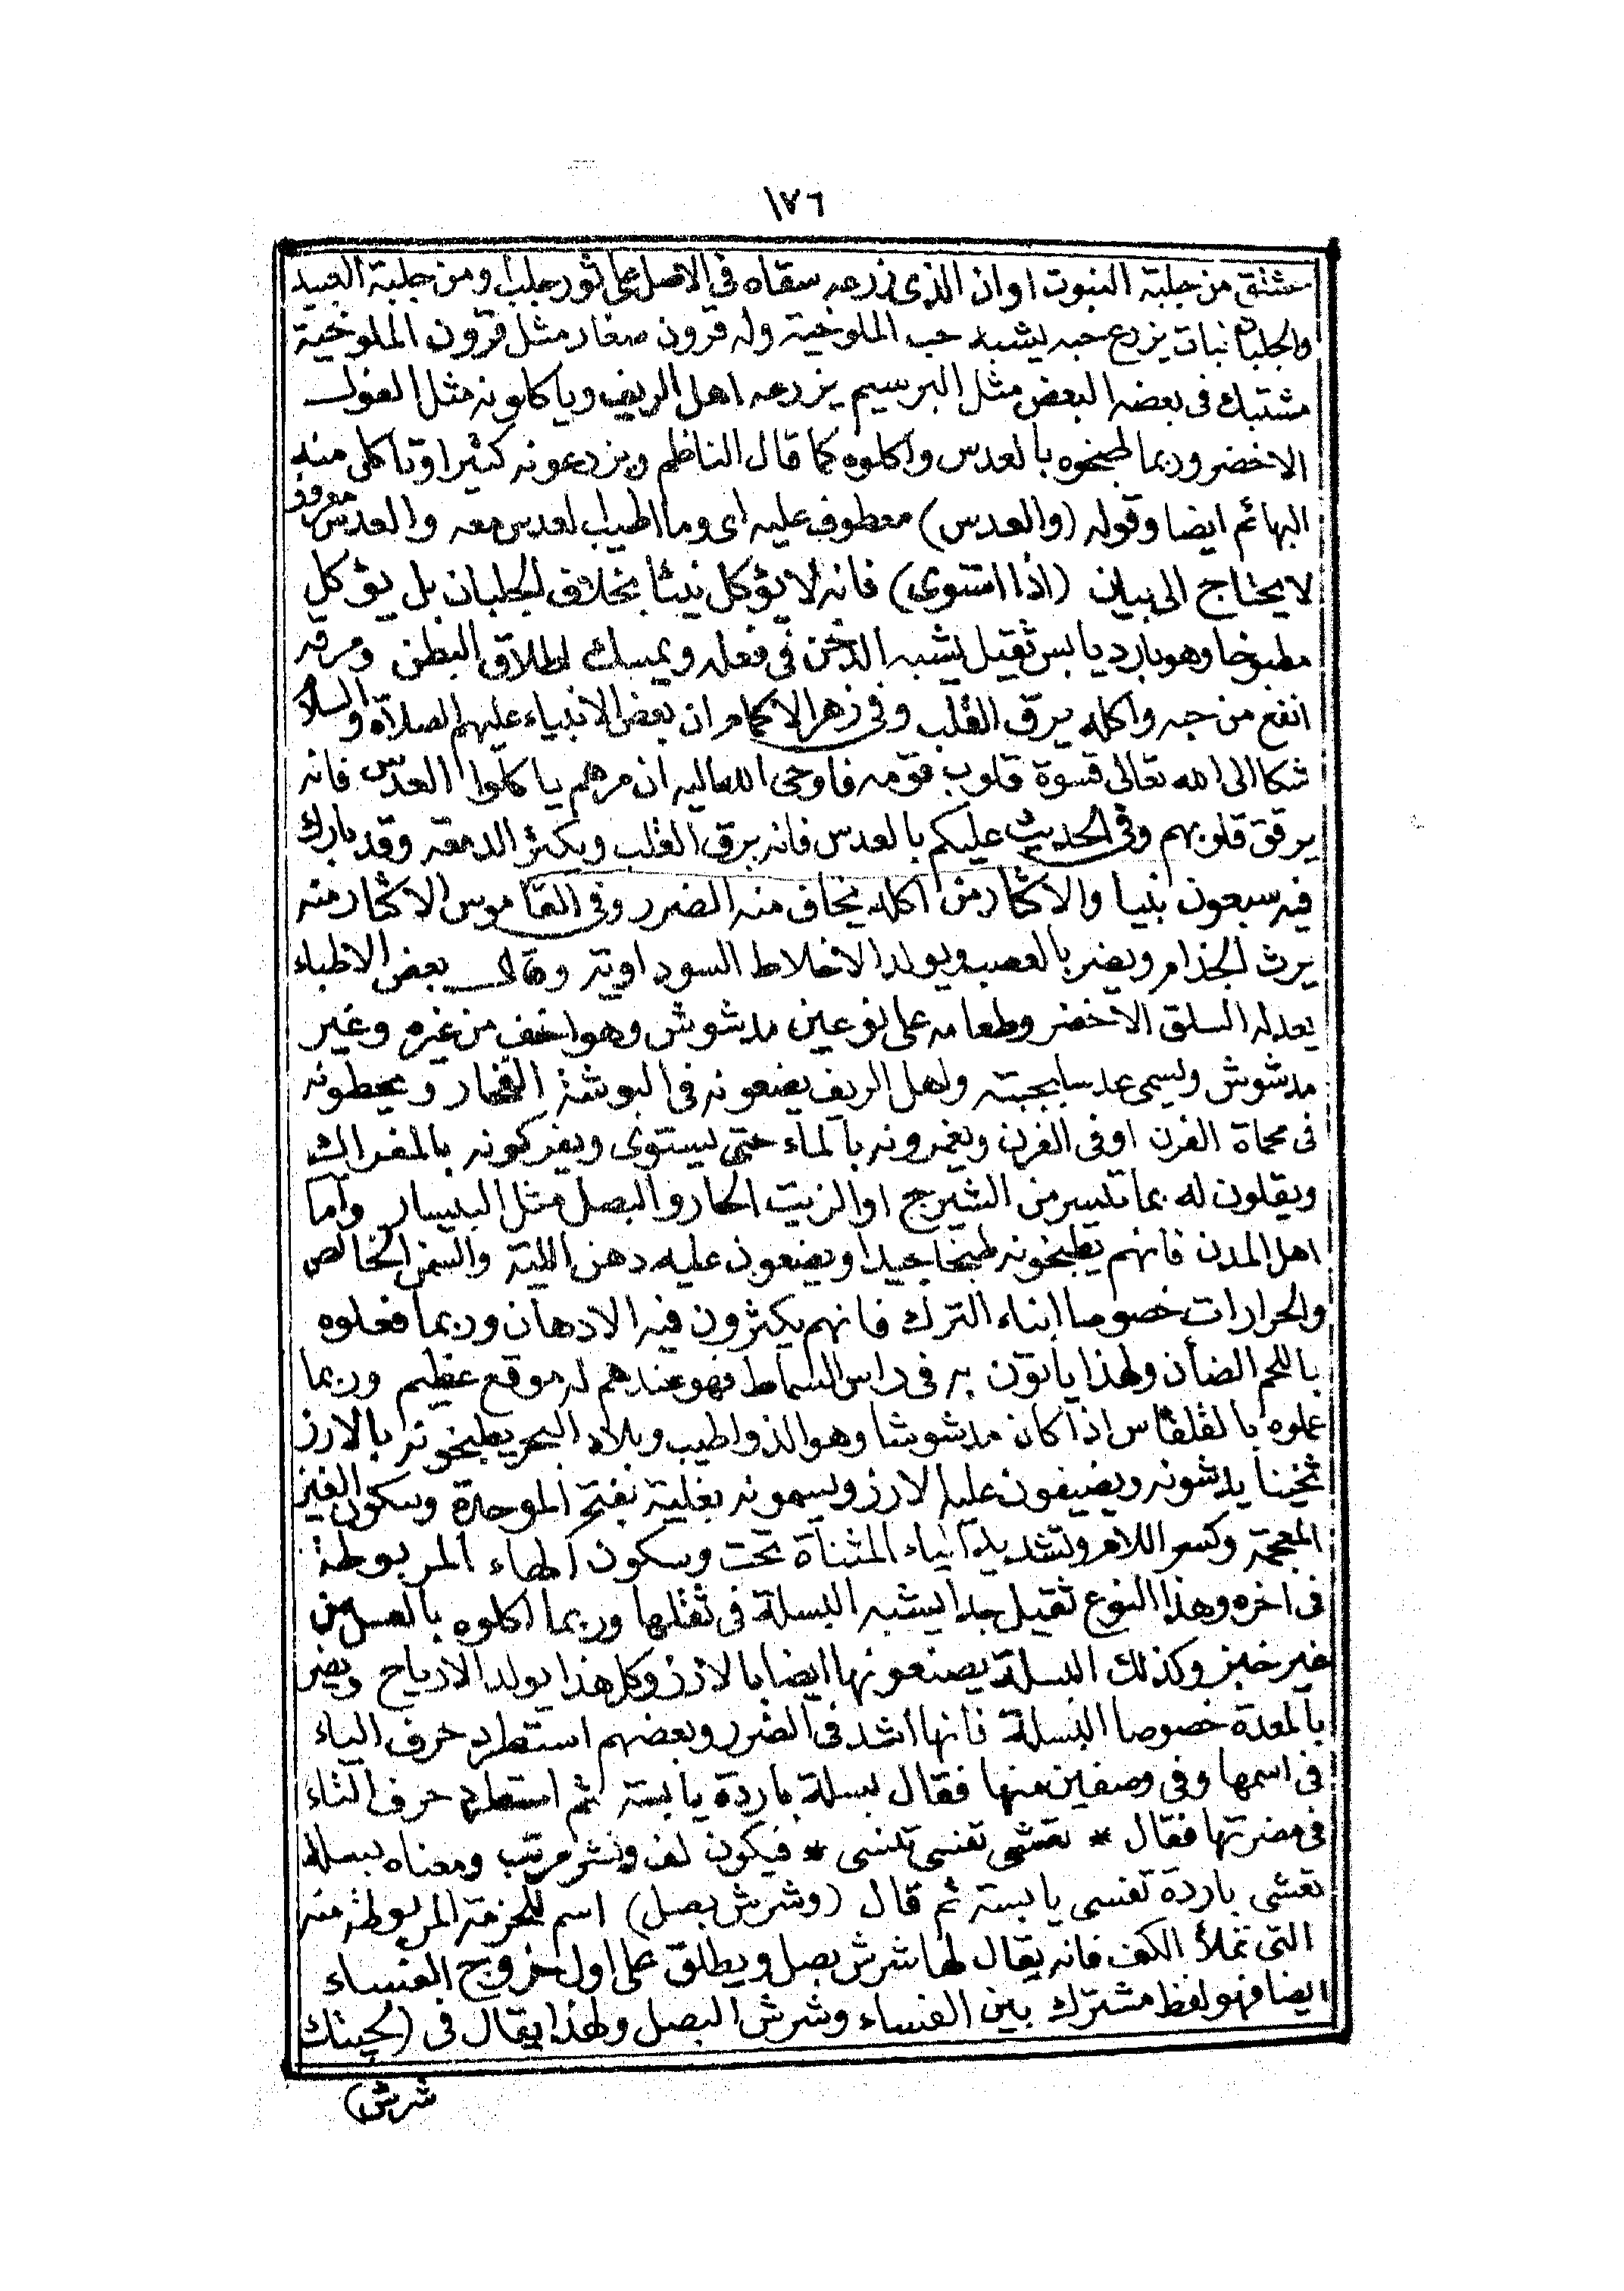 ١٧٦
مشتق من جلبة النبوت اوان الذى زرعه سقاه فى الاصل على ثور جلب او من جلبة العبيد
والجلبان نبات يزرع حبه يشبه حب الملوخية وله قرون صغار مثل قرون الملوخية
مشتبك فى بعضه البعض مثل البرسيم يزرعه اهل الريف وياكلونه مثل الفول
الاخضر وربما طبخوه بالعدس واكلوه كما قال الناظم ويزرعونه كثيرا وتاكل منه
البهائم ايضا وقوله (والعدس) معطوف عليه اى وما اطيب العدس معه والعدس معروف
لا يحتاج الى بيان (اذا استوى) فانه لا يؤكل نيئا بخلاف الجلبان بل يؤكل
مطبوخا وهو بارد يابس ثقيل يشبه الدخن فى فعله ويمسك اطلاق البطن ومرقه
انفع من حبه واكله يرق القلب وفى زهر الاكمام ان بعض الانبياء عليهم الصلاة والسلام
شكا الى الله تعالى قسوة قلوب قومه فاوحى الله اليه ان مرهم ياكلوا العدس فانه
يرقق قلوبهم وفى الحديث عليكم بالعدس فانه يرق القلب ويكثر الدمعة وقد بارك
فيه سبعون نبيا والاكثار من اكله يخاف منه الضرر وفى القاموس الاكثار منه
يرث الجذام ويضر بالعصب ويولد الاخلاط السوداوية وقال بعض الاطباء
يعدله السلق الاخضر وطعامه على نوعين مدشوش وهو اخف من غيره وغير
مدشوش ويسمى عدسا بجبته واهل الريف يضعونه فى البوشة الفخار ويحطونه
فى محماة الفرن او فى الفرن ويغمرونه بالماء حتى يستوى ويفركونه بالمفراك
ويقلون له بما تيسر من الشيرج او الزيت الحار والبصل مثل البيسار واما
اهل المدن فانهم يطبخونه طبخا جيدا ويضعون عليه دهن اللية والسمن الخالص
والحرارات خصوصا ابناء الترك فانهم يكثرون فيه الادهان وربما فعلوه
باللحم الضأن ولهذا ياتون به فى راس السماط فهو عندهم له موقع عظيم وربما
عملوه بالقلقاس اذا كان مدشوشا وهو الذ واطيب وبلاد البحر يطبخونه بالارز
ثخينا يدشونه ويضيفون عليه الارز ويسمونه بغلية بفتح الموحدة وسكون الغين
المعجمة وكسر اللام وتشديد الياء المثناة تحت وسكون الهاء المربوطة
فى اخره وهذا النوع ثقيل جدا يشبه البسلة فى ثقلها وربما اكلوه بالعسل من
غير خبز وكذلك البسلة يصنعونها ايضا بالارز وكل هذا يولد الارياح ويضر
بالمعدة خصوصا البسلة فانها اشد فى الضرر وبعضهم استطرد حرف الباء
فى اسمها وفى وصفين منها فقال بسلة باردة يابسة ثم استطرد حرف التاء
فى مضرتها فقال * تعشى تفسى تنسى * فيكون لف ونشر مرتب ومعناه بسلة
تعشى باردة تفسى يابسة ثم قال (وشرش بصل) اسم للحزمة المربوطة منه
التى تملأ الكف فانه يقال لها شرش بصل ويطلق على اول خروج الفساء
ايضا فهو لفظ مشترك بين الفساء وشرش البصل ولهذا يقال فى (لحيتك
شرش)